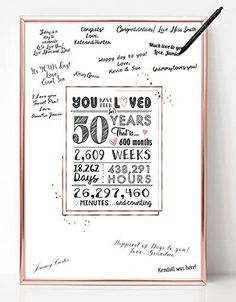 Today is a day
to celebrate
We Love You!
Love, Mom
and Dad
Congrats!
Love,
Kate and Hunter
Congratulations! Love Miss Smith
Happy day to you!
Love,
Kevin & Sue
Much love to you
Love,
Grammy loves you!
It's YOUR day!
Love,
I love you
Sweet Pea!
Love,
Auntie Janice
YOU HAVE BEEN LOVED
for
50 YEARS
That is...
600 months
2,609 WEEKS
18,262 Days
438,291 HOURS
26,297,460
MINUTES ...and counting
Happiest of Days to you!
Love, Grandma
Jimmy Carter
Kendall was here!